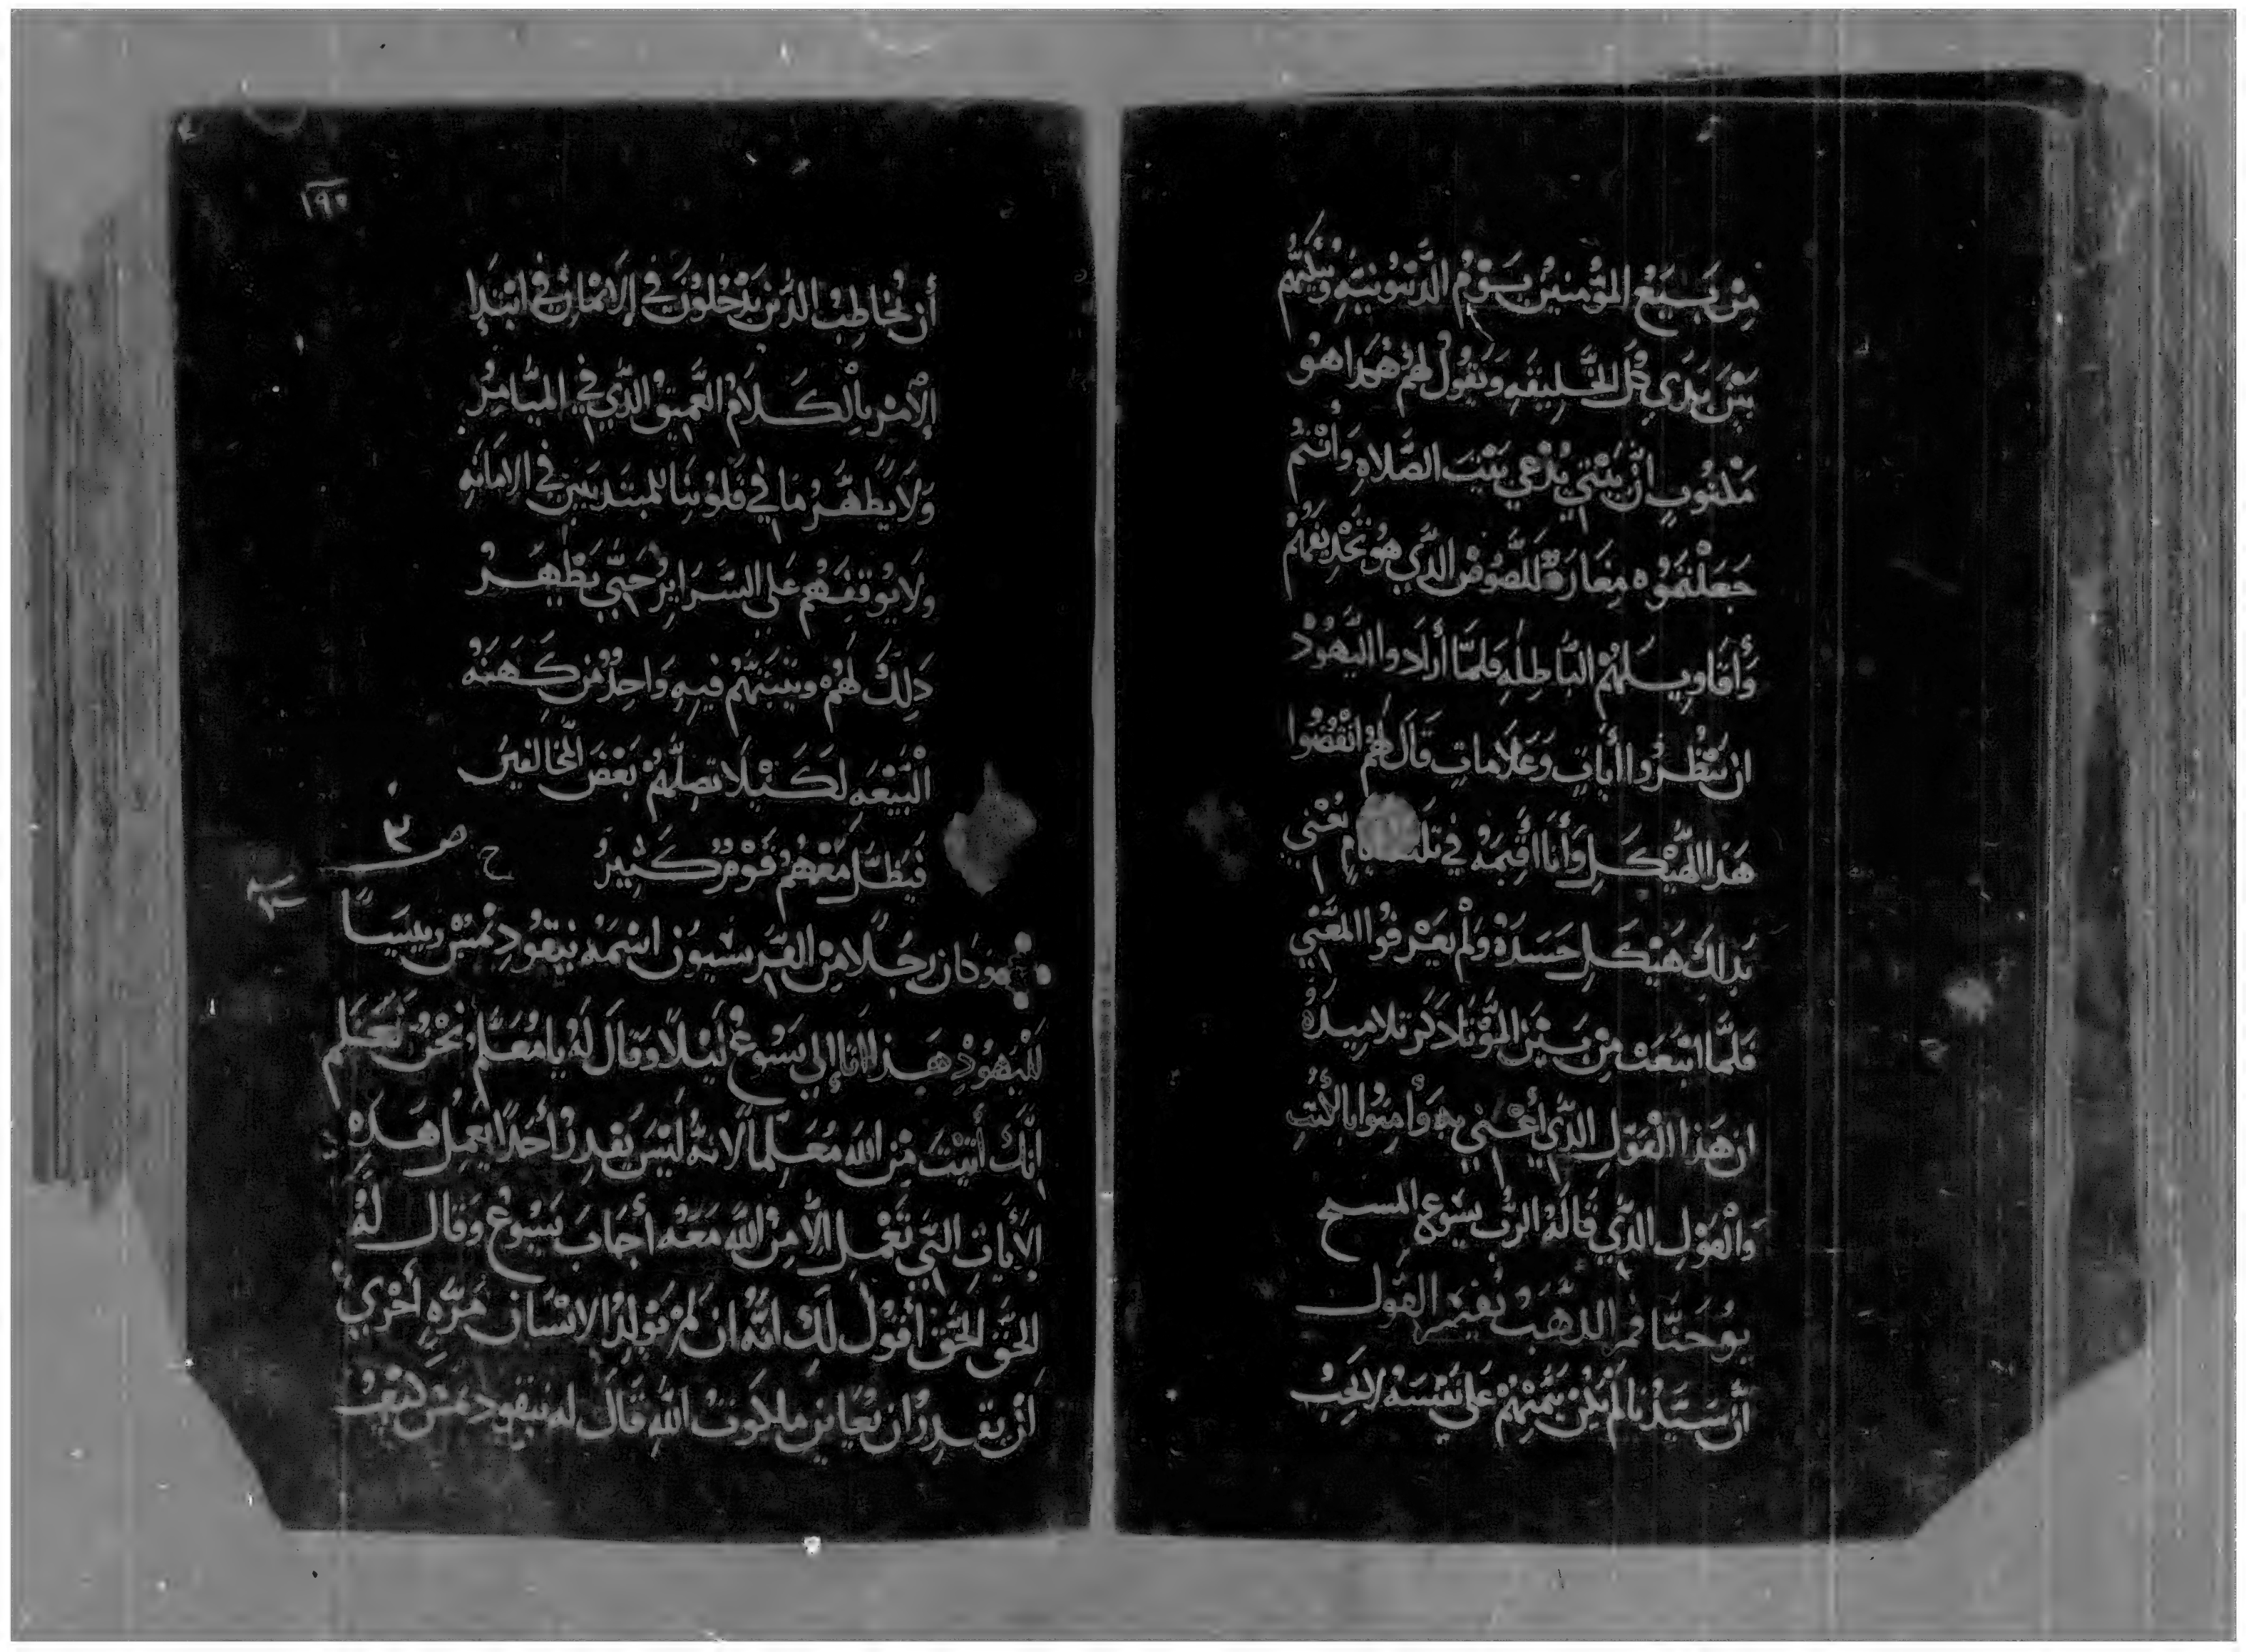 من يبيع المؤمنين يوم الدينونيه ويبكتهم
بين يدي كل الخليقه ويقول لهم هذا هو
مكتوب ان بيتي يدعي بيت الصلاه وأنتم
جعلتموه مغارة للصوص الذي هو تجديفهم
وأقاويلهم الباطله فلما أرادوا اليهود
ان ينظروا أيات وعلامات قال لهم انقضوا
هذا الهيكل وأنا أقيمه في يعني
بذلك هيكل جسده ولم يعرفوا المعني
فلما انبعث من بين الموتا ذكر تلاميذه
ان هذا القول الذي أعني به وأمنوا بالكتب
والقول الذي قاله الرب يسوع المسيح
يوحنا فم الذهب يفسر القول
ان سيدنا لم يكن يتمنهم علي نفسه لا يجب
١٩٠
أن يخاطب الذين يدخلون في الإيمان في ابتدا
الأمر بالكلام العميق الذي في الميامر
ولا يظهر ما في قلوبنا للمبتديين في الامانه
ولا يوقفهم علي السراير حتي يظهر
ذلك لهم ويثبتهم فيه واحد من كهنة
البيعه لكيلا تصلهم بعض المخالفين
فيظل معهم قوم كثير
وكان رجلا من الفريسيون اسمه نيقوديمس رييسا
لليهود هذا اتا إلي يسوع ليلا وقال له يا معلم نحن نعلم
انك أتيت من الله معلما لانه ليس يقدر أحدا يعمل هذه
الأيات التي تعمل إلا من الله معه أجاب يسوع وقال له
الحق الحق أقول لك انه ان لم يولد الانسان مره أخري
لن يقدر ان يعاين ملكوت الله قال له نيقوديمس كيف